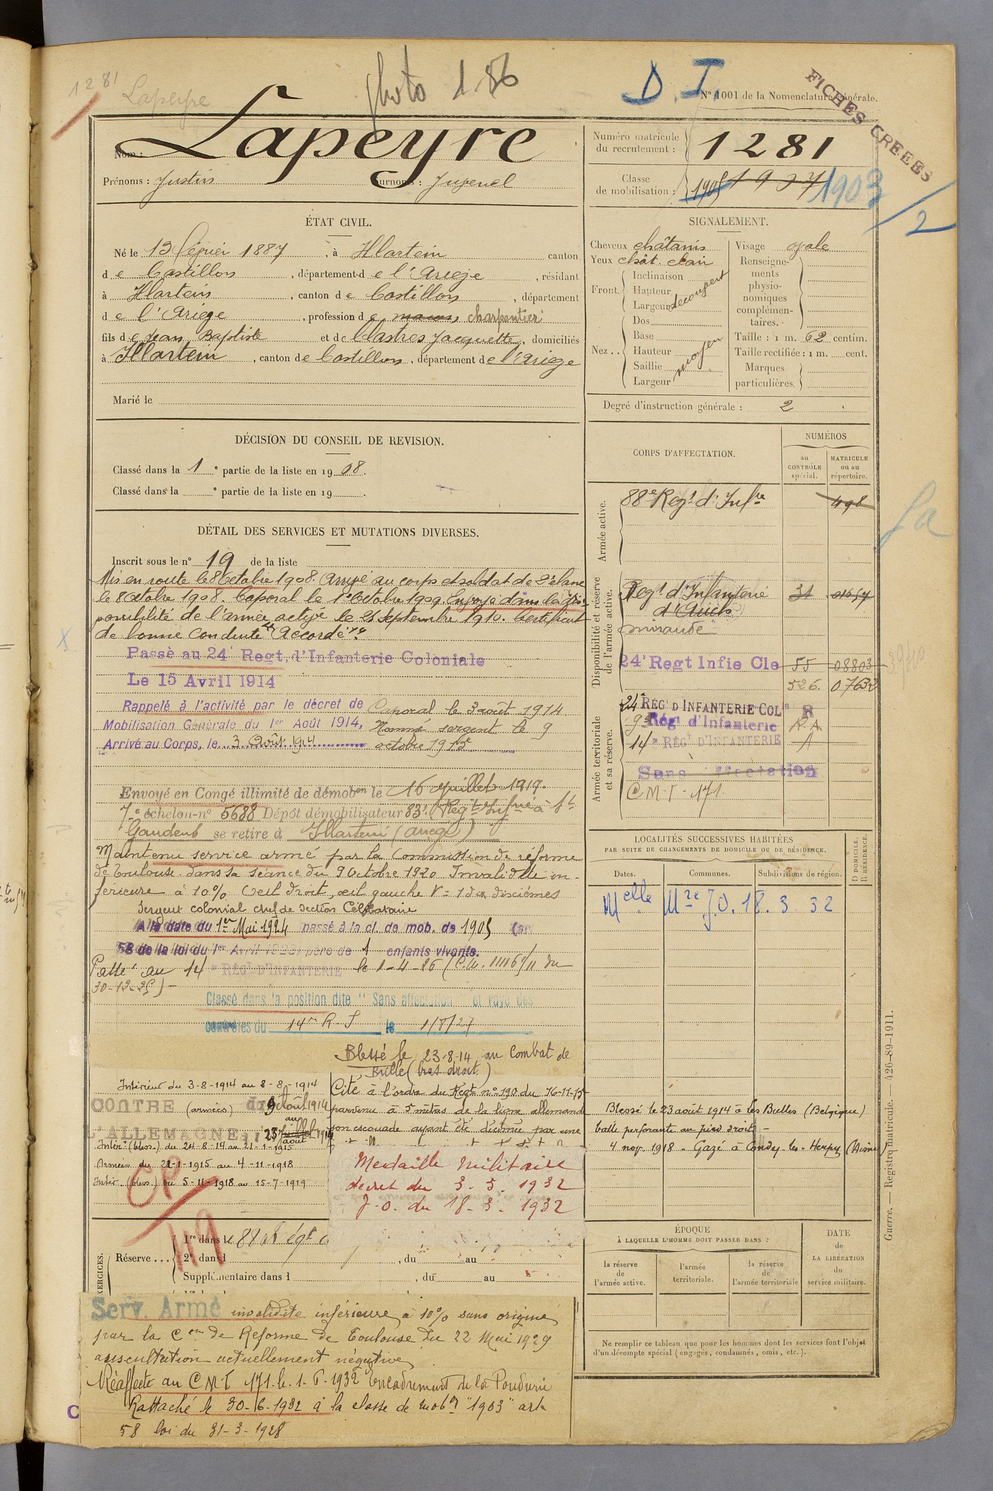 1281 Lapeyre
photo 1.86
D.I
N° 1001 de la Nomenclature générale.
FICHES CREEES
Nom : Lapeyre
Prénoms : Justin Surnoms : Jugenel
Numéro matricule du recrutement : 1281
Classe de mobilisation : 1905 1907 1903
/2
ÉTAT CIVIL.
Né le 13 février 1887, à Illartein canton
de Castillon, département de l'Ariège, résidant
à Illartein, canton de Castillon, département
de l'Ariège, profession de charpentier
fils de Jean Baptiste et de Castres Jacquette, domiciliés
à Illartein, canton de Castillon, département de l'Ariège
Marié le
SIGNALEMENT.
Cheveux châtains
Yeux chât. clair
Front. Inclinaison
Hauteur
Largeur découvert
Nez .. Dos
Base
Hauteur moyen
Saillie
Largeur
Visage ovale
Renseignements physionomiques complémentaires.
Taille : 1 m. 62 centim.
Taille rectifiée : 1 m. cent.
Marques particulières.
Degré d'instruction générale : 2
DÉCISION DU CONSEIL DE REVISION.
Classé dans la 1e partie de la liste en 1908.
Classé dans la e partie de la liste en 19
DÉTAIL DES SERVICES ET MUTATIONS DIVERSES.
Inscrit sous le n° 19 de la liste
Mis en route le 8 Octobre 1908. Arrivé au corps et soldat de 2e classe
le 8 Octobre 1908. Caporal le 1er Octobre 1909. Envoyé dans la dis-
ponibilité de l'armée active le 25 septembre 1910. Certificat
de bonne conduite "Accordé".
Passé au 24e Regt. d'Infanterie Coloniale
Le 15 Avril 1914
Rappelé à l'activité par le décret de Caporal le 3 août 1914
Mobilisation Générale du 1er Août 1914, Nommé sergent le 9
Arrivé au Corps, le 3 Août 1914 octobre 1915
Envoyé en Congé illimité de démobon le 16 Juillet 1919
7e échelon n° 5688 Dépôt démobilisateur 83e Regt Infrie à St
Gaudens se retire à Illartein (Ariège)
Maintenu service armé par la Commission de réforme
de Toulouse dans sa séance du 9 Octobre 1920 Invalidité in-
férieure à 10% oeil droit, oeil gauche V = 1 dix dixièmes
Sergent colonial chef de section
A la date du 1er Mai 1924 passé à la cl. de mob. de 1905 (art
58 de la loi du 1er Avril 1923) père de 1 enfants vivants.
Passé au 14e RÉGt D'INFANTERIE le 1-4-26 (C.M. 11116/11 du
30-12-25)-
Classé dans la position dite "Sans affectation" et rayé des
contrôles du 14me R.I le 1/8/27
Blessé le 23-8-14 au combat de
Bulle (bras droit)
Intérieur du 3-8-1914 au 8-8-1914
CONTRE (armées) du 9 Août 1914
L'ALLEMAGNE au 23 août 1914
Intér. (bless.) du 24-8-14 au 21-1-1915
Armées du 22-1-1915 au 4-11-1918
Intér. (bless.) du 5-11-1918 au 15-7-1919
CP
119
Cité à l'ordre du Regt n° 190 du 16-11-15
parvenu à 5 mètres de la ligne allemande
son escouade ayant été décimée par une
Medaille militaire
décret du 3-3-1932
J.O. du 18-3-1932
EXERCICES.
Réserve ... 1re dans le 88e Régt
2e dans l , du au
Supplémentaire dans l , du au
Serv. Armé invalidité inférieure à 10% sans origine
par la Con de Réforme de Toulouse du 22 Mai 1929
auscultation actuellement négative
Réaffecté au CMT 171 le 1-6-1932 encadrement de la Poudrerie
Rattaché le 30-6-1932 à la classe de mobn "1903" art
58 loi du 31-3-1928
CORPS D'AFFECTATION.
NUMÉROS
au CONTRÔLE spécial.
MATRICULE ou au répertoire.
Armée active.
88e Regt d'Infrie 498
Disponibilité et réserve de l'armée active.
Regt d'Infanterie 31
d'Auch
Mirande
24e Regt Infie Cle 55 08803
526 07632
Armée territoriale et sa réserve.
24e RÉGt D'INFANTERIE COLe R
Rég. d'Infanterie
14e RÉGt D'INFANTERIE A
Sans affectation
C.M.T. 171
LOCALITÉS SUCCESSIVES HABITÉES
PAR SUITE DE CHANGEMENTS DE DOMICILE OU DE RÉSIDENCE.
Dates. Communes. Subdivisions de région. D DOMICILE. R RÉSIDENCE.
Melle Mre J.O. 18.3.32
Blessé le 23 août 1914 à les Bulles (Belgique)
balle perforante au pied droit -
4 novre 1918 - Gazé à Condey-les-Herpy (Aisne)
ÉPOQUE
À LAQUELLE L'HOMME DOIT PASSER DANS :
la réserve de l'armée active.
l'armée territoriale.
la réserve de l'armée territoriale
DATE DE LA LIBÉRATION du service militaire.
Ne remplir ce tableau que pour les hommes dont les services font l'objet
d'un décompte spécial (engagés, condamnés, omis, etc.).
Guerre. — Registre matricule. — 426-89-1911.